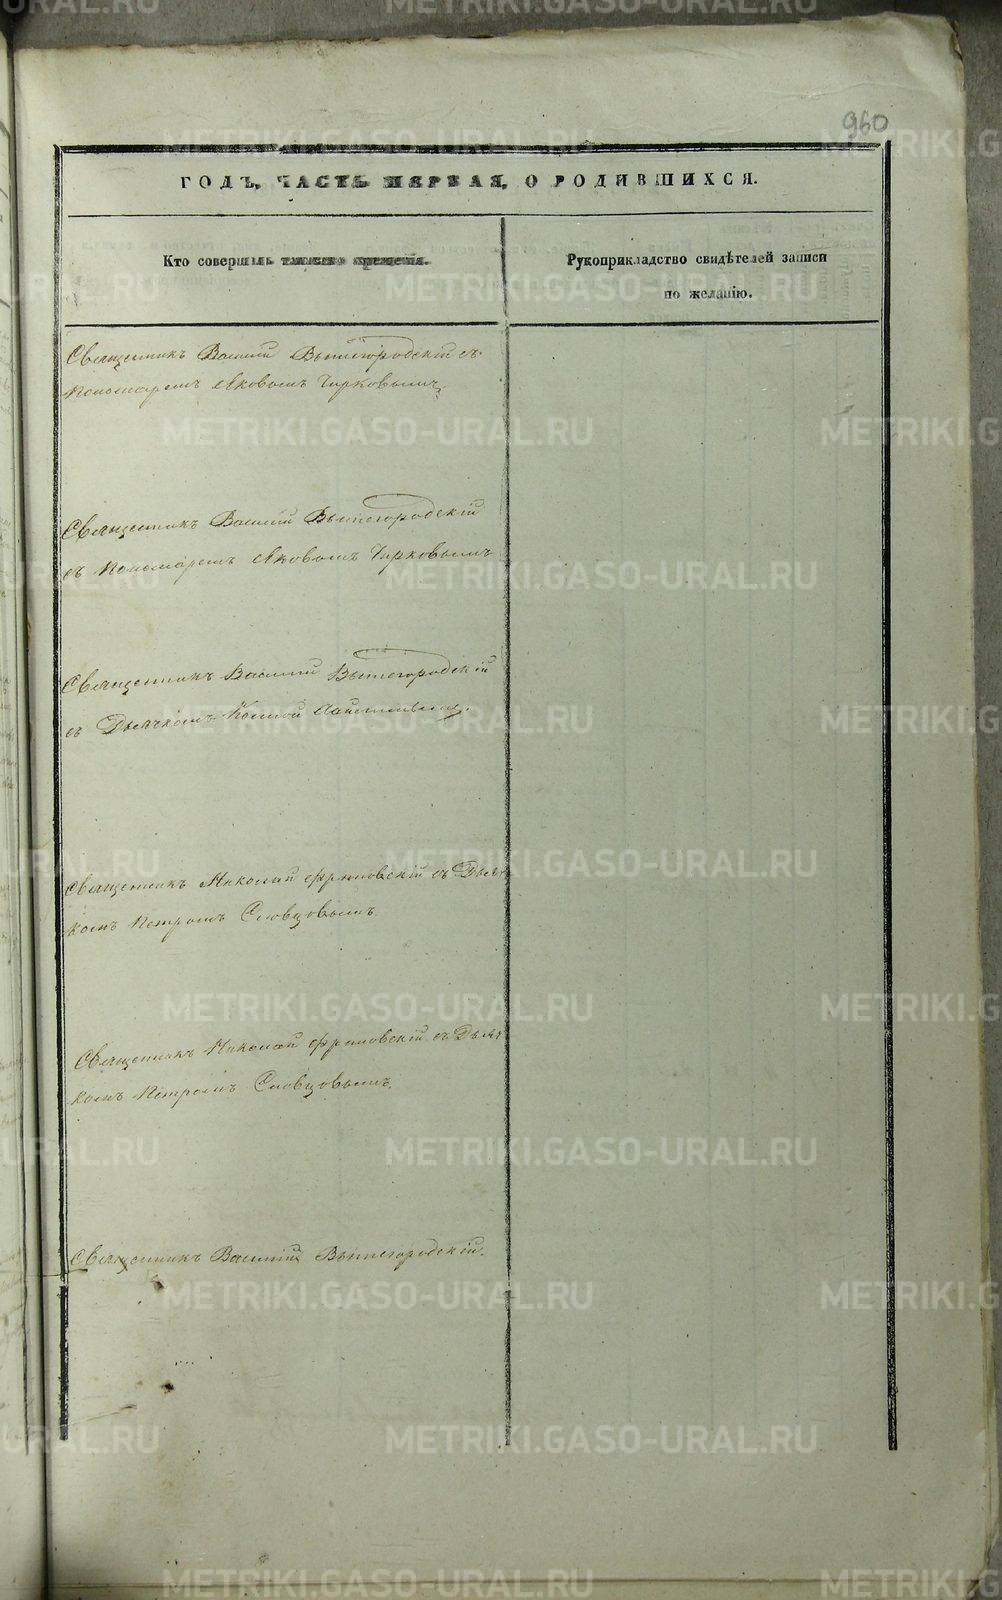 960
ГОДЪ, ЧАСТЬ ПЕРВАЯ, О РОДИВШИХСЯ.
Кто совершалъ таинство крещенія.
Рукоприкладство свидѣтелей записи
по желанію.
Священникъ Василій Вышегородскій съ
Пономаремъ Яковомъ Чирковымъ
Священникъ Василій Вышегородскій
съ Пономаремъ Яковомъ Чирковымъ
Священникъ Василій Вышегородскій
съ Дьячкомъ Космой
Священникъ Николай съ Дьяч
комъ Петромъ Словцовымъ.
Священникъ Николай съ Дьяч
комъ Петромъ Словцовымъ.
Священникъ Василій Вышегородскій.
METRIKI.GASO-URAL.RU